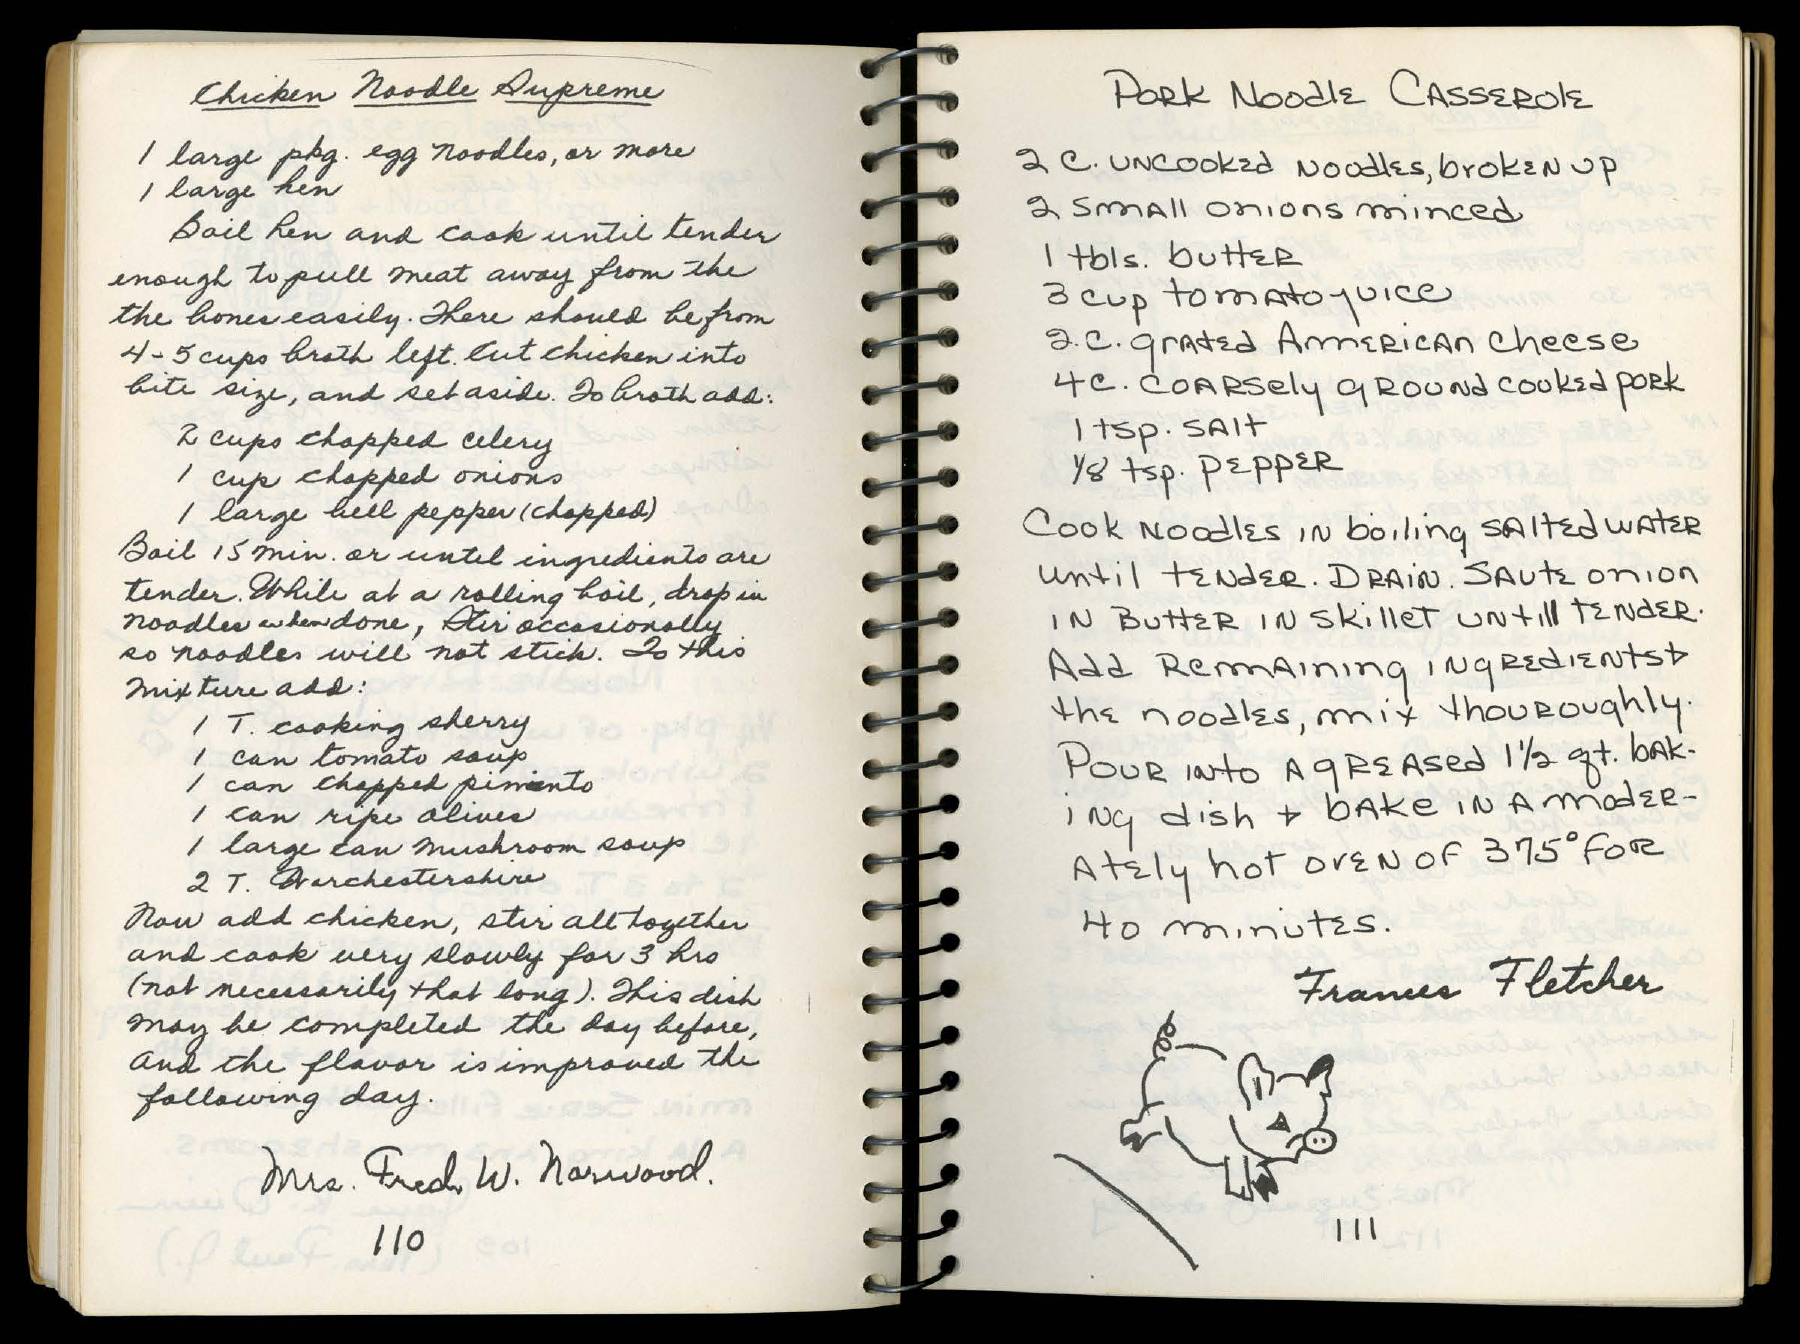 Chicken Noodle Supreme
1 large pkg. egg noodles, or more
1 large hen
Boil hen and cook until tender
enough to pull meat away from the
the bones easily. There should be from
4-5 cups broth left. Cut chicken into
bite size, and set aside. To broth add:
2 cups chopped celery
1 cup chopped onions
1 large bell pepper (chopped)
Boil 15 min. or until ingredients are
tender. While at a rolling boil, drop in
noodles when done, stir occasionally
so noodles will not stick. To this
mixture add:
1 T. cooking sherry
1 can tomato soup
1 can chopped pimiento
1 can ripe olives
1 large can mushroom soup
2 T. Worchestershire
Now add chicken, stir all together
and cook very slowly for 3 hrs
(not necessarily that long). This dish
may be completed the day before,
and the flavor is improved the
following day.
Mrs. Fred W. Norwood.
110
Pork Noodle Casserole
2 c. uncooked noodles, broken up
2 small onions minced
1 tbls. butter
3 cup tomato juice
2 c. grated American cheese
4 c. coarsely ground cooked pork
1 tsp. salt
1/8 tsp. pepper
Cook noodles in boiling salted water
until tender. Drain. Saute onion
in butter in skillet untill tender.
Add remaining ingredients +
the noodles, mix thouroughly.
Pour into a greased 1 1/2 qt. bak-
ing dish + bake in a moder-
ately hot oven of 375° for
40 minutes.
Frances Fletcher
111